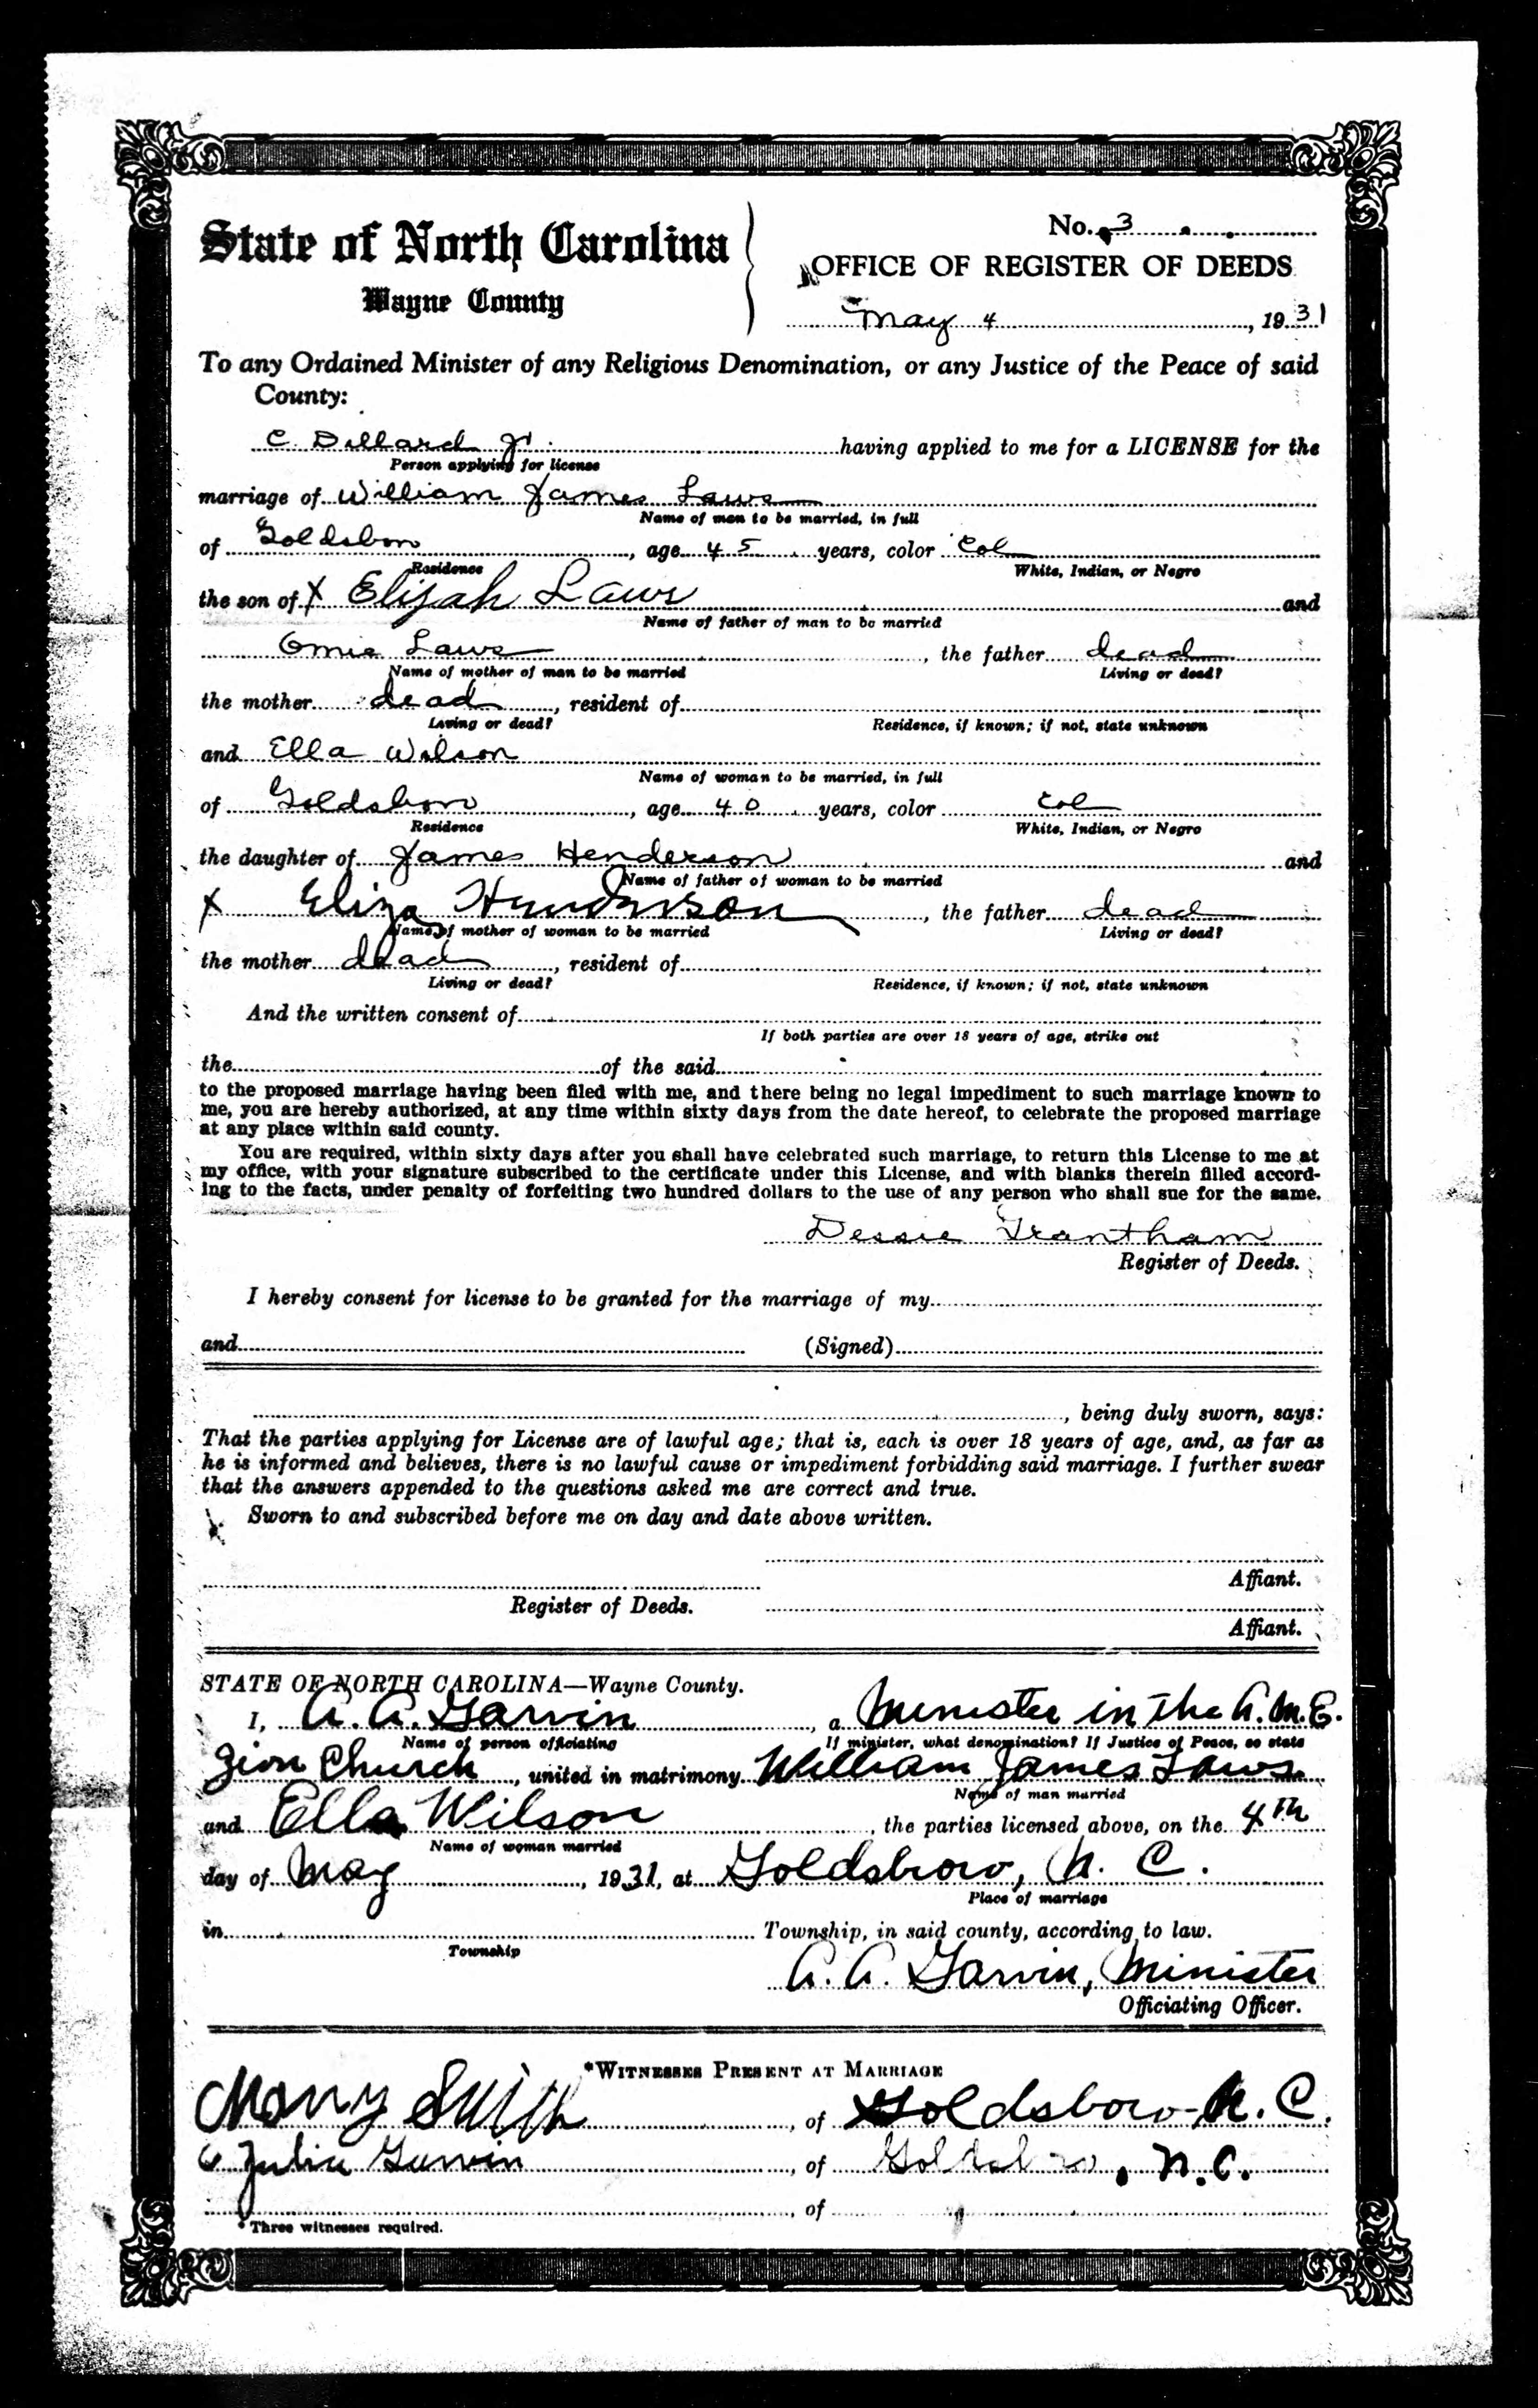 State of North Carolina
Wayne County
No. 3
OFFICE OF REGISTER OF DEEDS
May 4, 1931
To any Ordained Minister of any Religious Denomination, or any Justice of the Peace of said
County:
C. Dillard Jr. having applied to me for a LICENSE for the
Person applying for license
marriage of William James Laws
Name of man to be married, in full
of Goldsboro, age 45 years, color Col
Residence White, Indian, or Negro
the son of X Elijah Laws and
Name of father of man to be married
Omie Laws, the father dead
Name of mother of man to be married Living or dead?
the mother dead, resident of
Living or dead? Residence, if known; if not, state unknown
and Ella Wilson
Name of woman to be married, in full
of Goldsboro, age 40 years, color Col
Residence White, Indian, or Negro
the daughter of James Henderson and
Name of father of woman to be married
X Eliza Henderson, the father dead
Name of mother of woman to be married Living or dead?
the mother dead, resident of
Living or dead? Residence, if known; if not, state unknown
And the written consent of
If both parties are over 18 years of age, strike out
the of the said
to the proposed marriage having been filed with me, and there being no legal impediment to such marriage known to
me, you are hereby authorized, at any time within sixty days from the date hereof, to celebrate the proposed marriage
at any place within said county.
You are required, within sixty days after you shall have celebrated such marriage, to return this License to me at
my office, with your signature subscribed to the certificate under this License, and with blanks therein filled accord-
ing to the facts, under penalty of forfeiting two hundred dollars to the use of any person who shall sue for the same.
Dessie Grantham
Register of Deeds.
I hereby consent for license to be granted for the marriage of my
and (Signed)
, being duly sworn, says:
That the parties applying for License are of lawful age; that is, each is over 18 years of age, and, as far as
he is informed and believes, there is no lawful cause or impediment forbidding said marriage. I further swear
that the answers appended to the questions asked me are correct and true.
Sworn to and subscribed before me on day and date above written.
Affiant.
Register of Deeds.
Affiant.
STATE OF NORTH CAROLINA—Wayne County.
I, A. A. Garvin, a Minister in the A. M. E.
Name of person officiating If minister, what denomination? If Justice of Peace, so state
Zion Church, united in matrimony William James Laws
Name of man married
and Ella Wilson, the parties licensed above, on the 4th
Name of woman married
day of May, 1931, at Goldsboro, N. C.
Place of marriage
in Township, in said county, according to law.
Township
A. A. Garvin, Minister
Officiating Officer.
*WITNESSES PRESENT AT MARRIAGE
Mary Smith, of Goldsboro N. C.
Julia Garvin, of Goldsboro, N.C.
, of
* Three witnesses required.